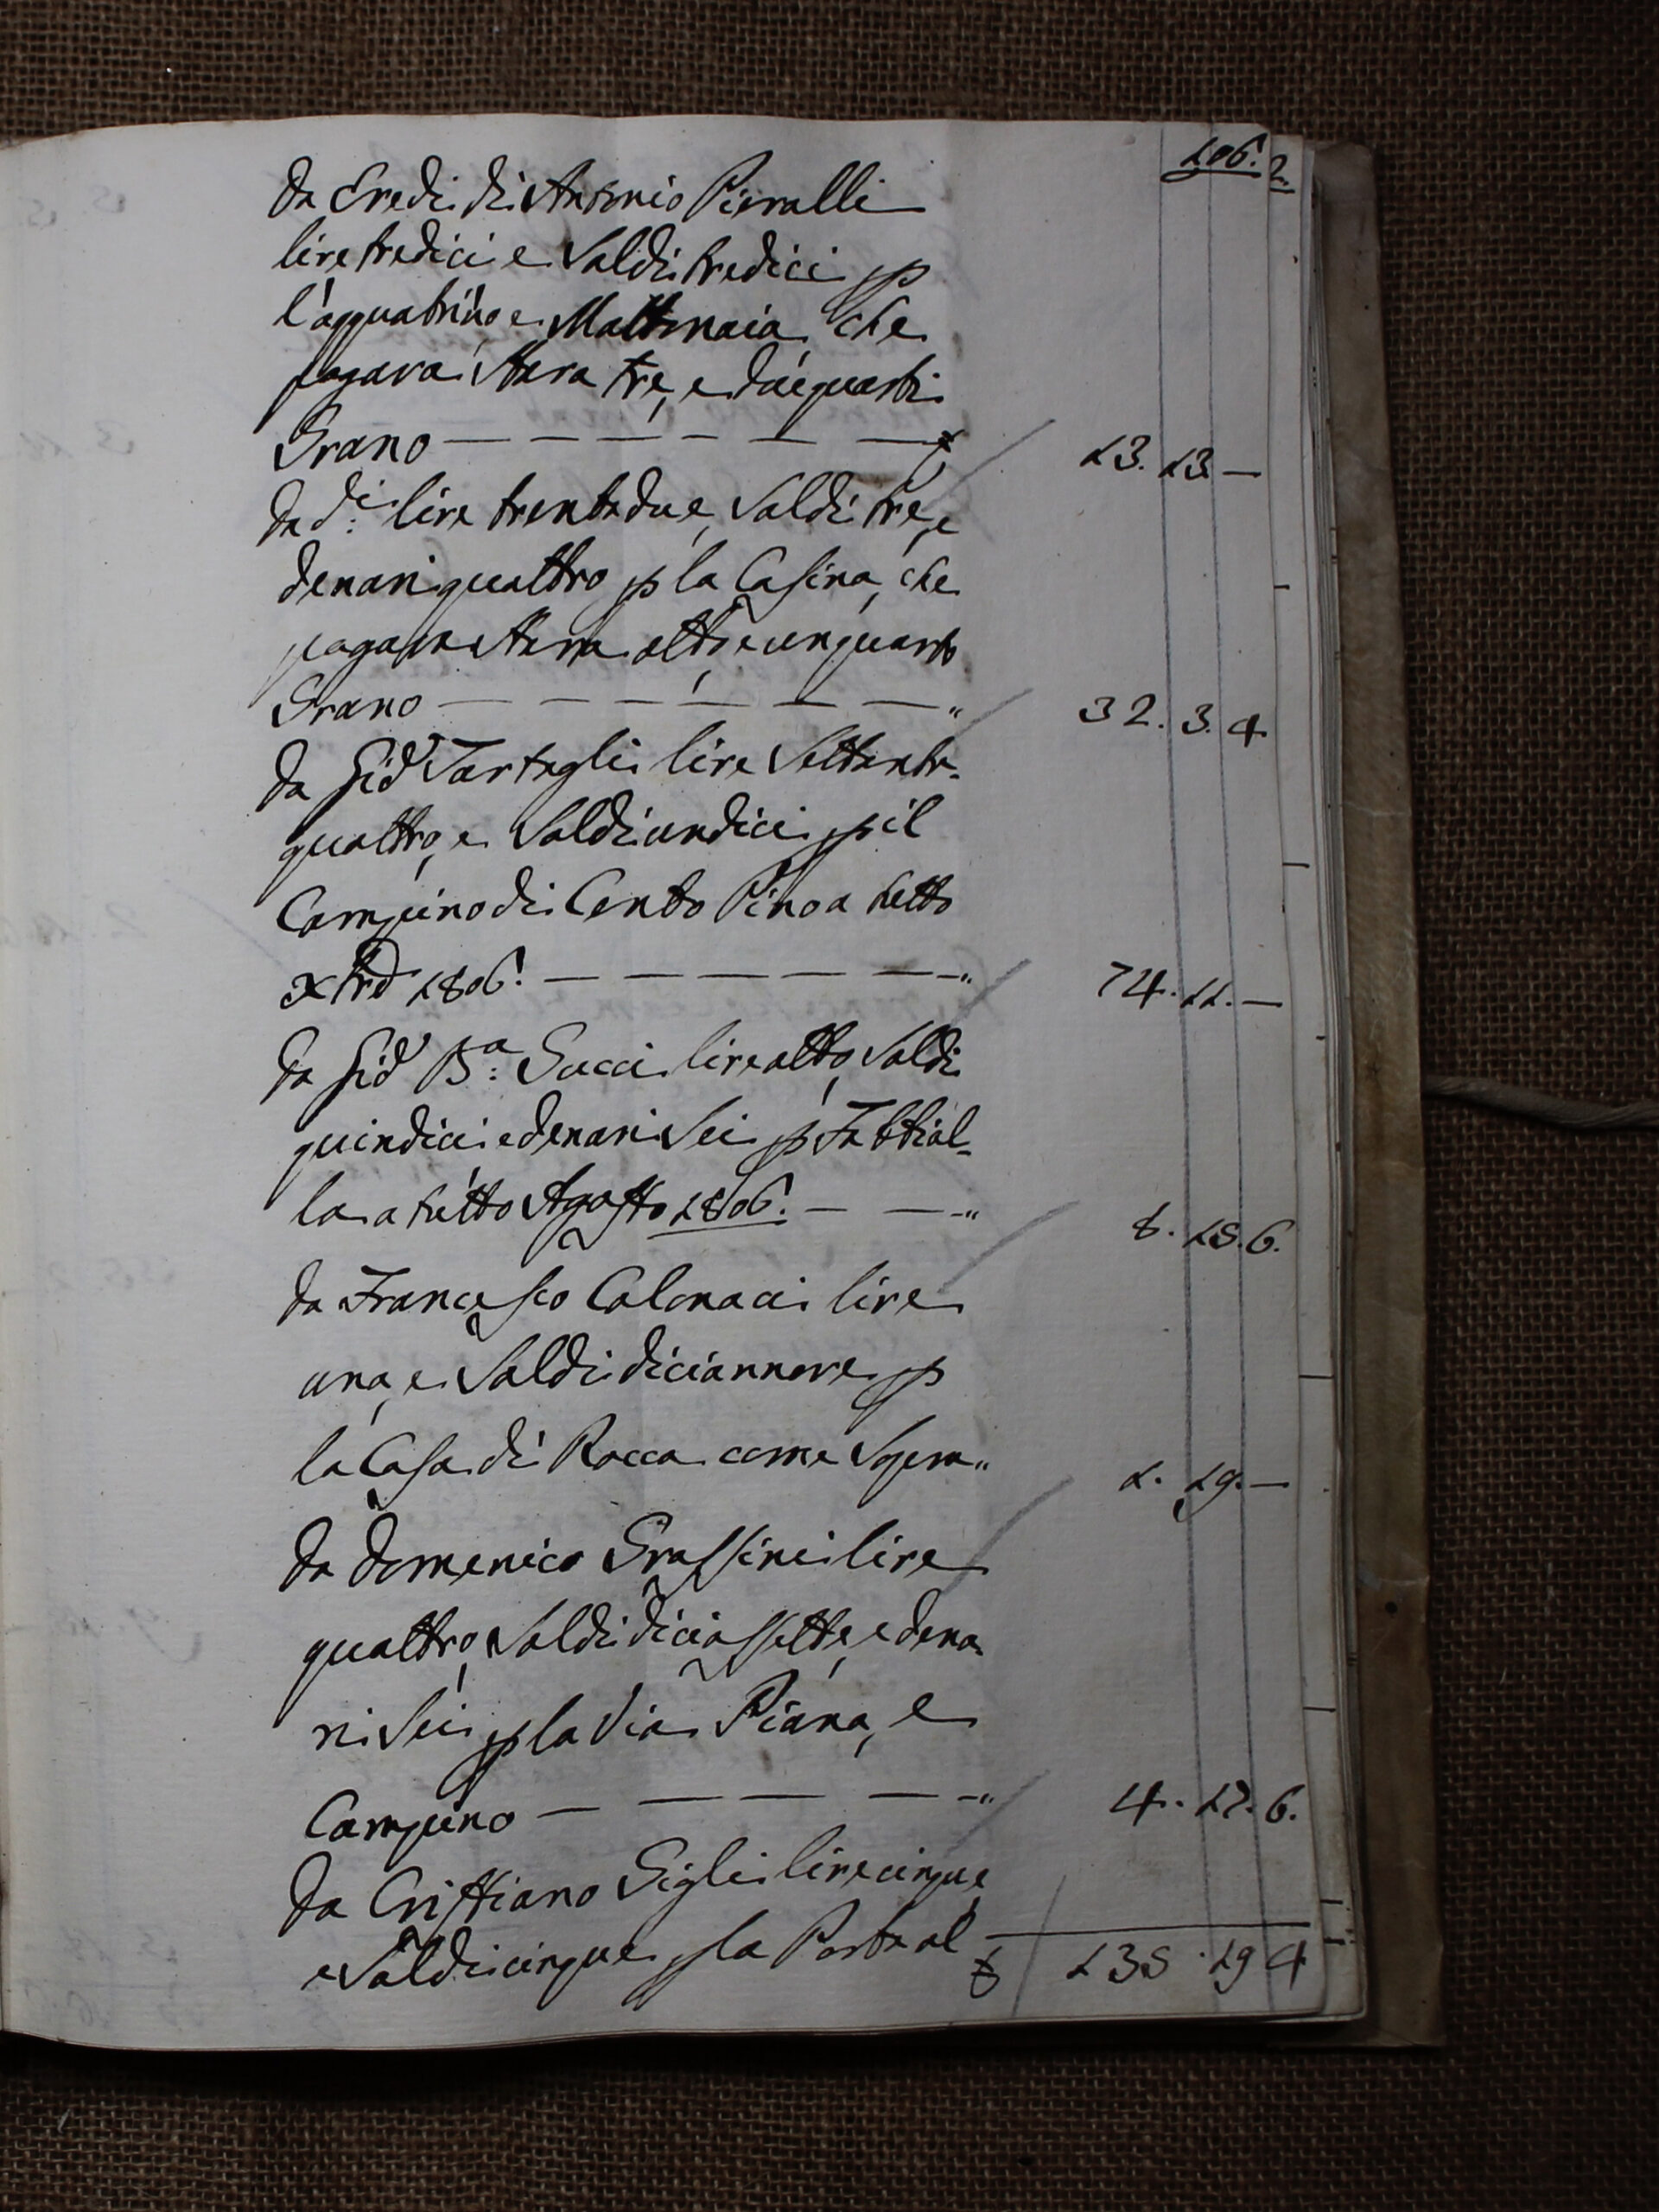 106. 2.
da Eredi di Antonio Pieralli
lire tredici e Soldi tredici p
l'acquatrino e Mattonaia che
pagava Staia tre, e due quarti
Grano — — — — — — £ 13. 13 —
da d.i lire trentadue, Soldi tre, e
denari quattro p la Casina, che
pagava Staia otto, e un quarto
Grano — — — — — — " 32. 3. 4
da Sid Tartagli lire Settanta-
quattro, e Soldi undici p il
Campino di Cento Pino a tutto
xbre 1806. — — — — — " 74. 11. —
da Sid B.a Succi lire otto, Soldi
quindici e denari Sei p Fabbial-
la a tutto Agosto 1806. — — " 8. 15. 6.
da Francesco Calonaci lire
una, e Soldi diciannove p
la Casa di Rocca come Sopra " 1. 19. —
da Domenico Grassini lire
quattro, Soldi diciassette, e dena-
ri Sei p la Via Piana, e
Campino — — — — — " 4. 17. 6.
da Cristiano Sigli lire cinque
e Soldi cinque p la Porta al
£ 135. 19 4